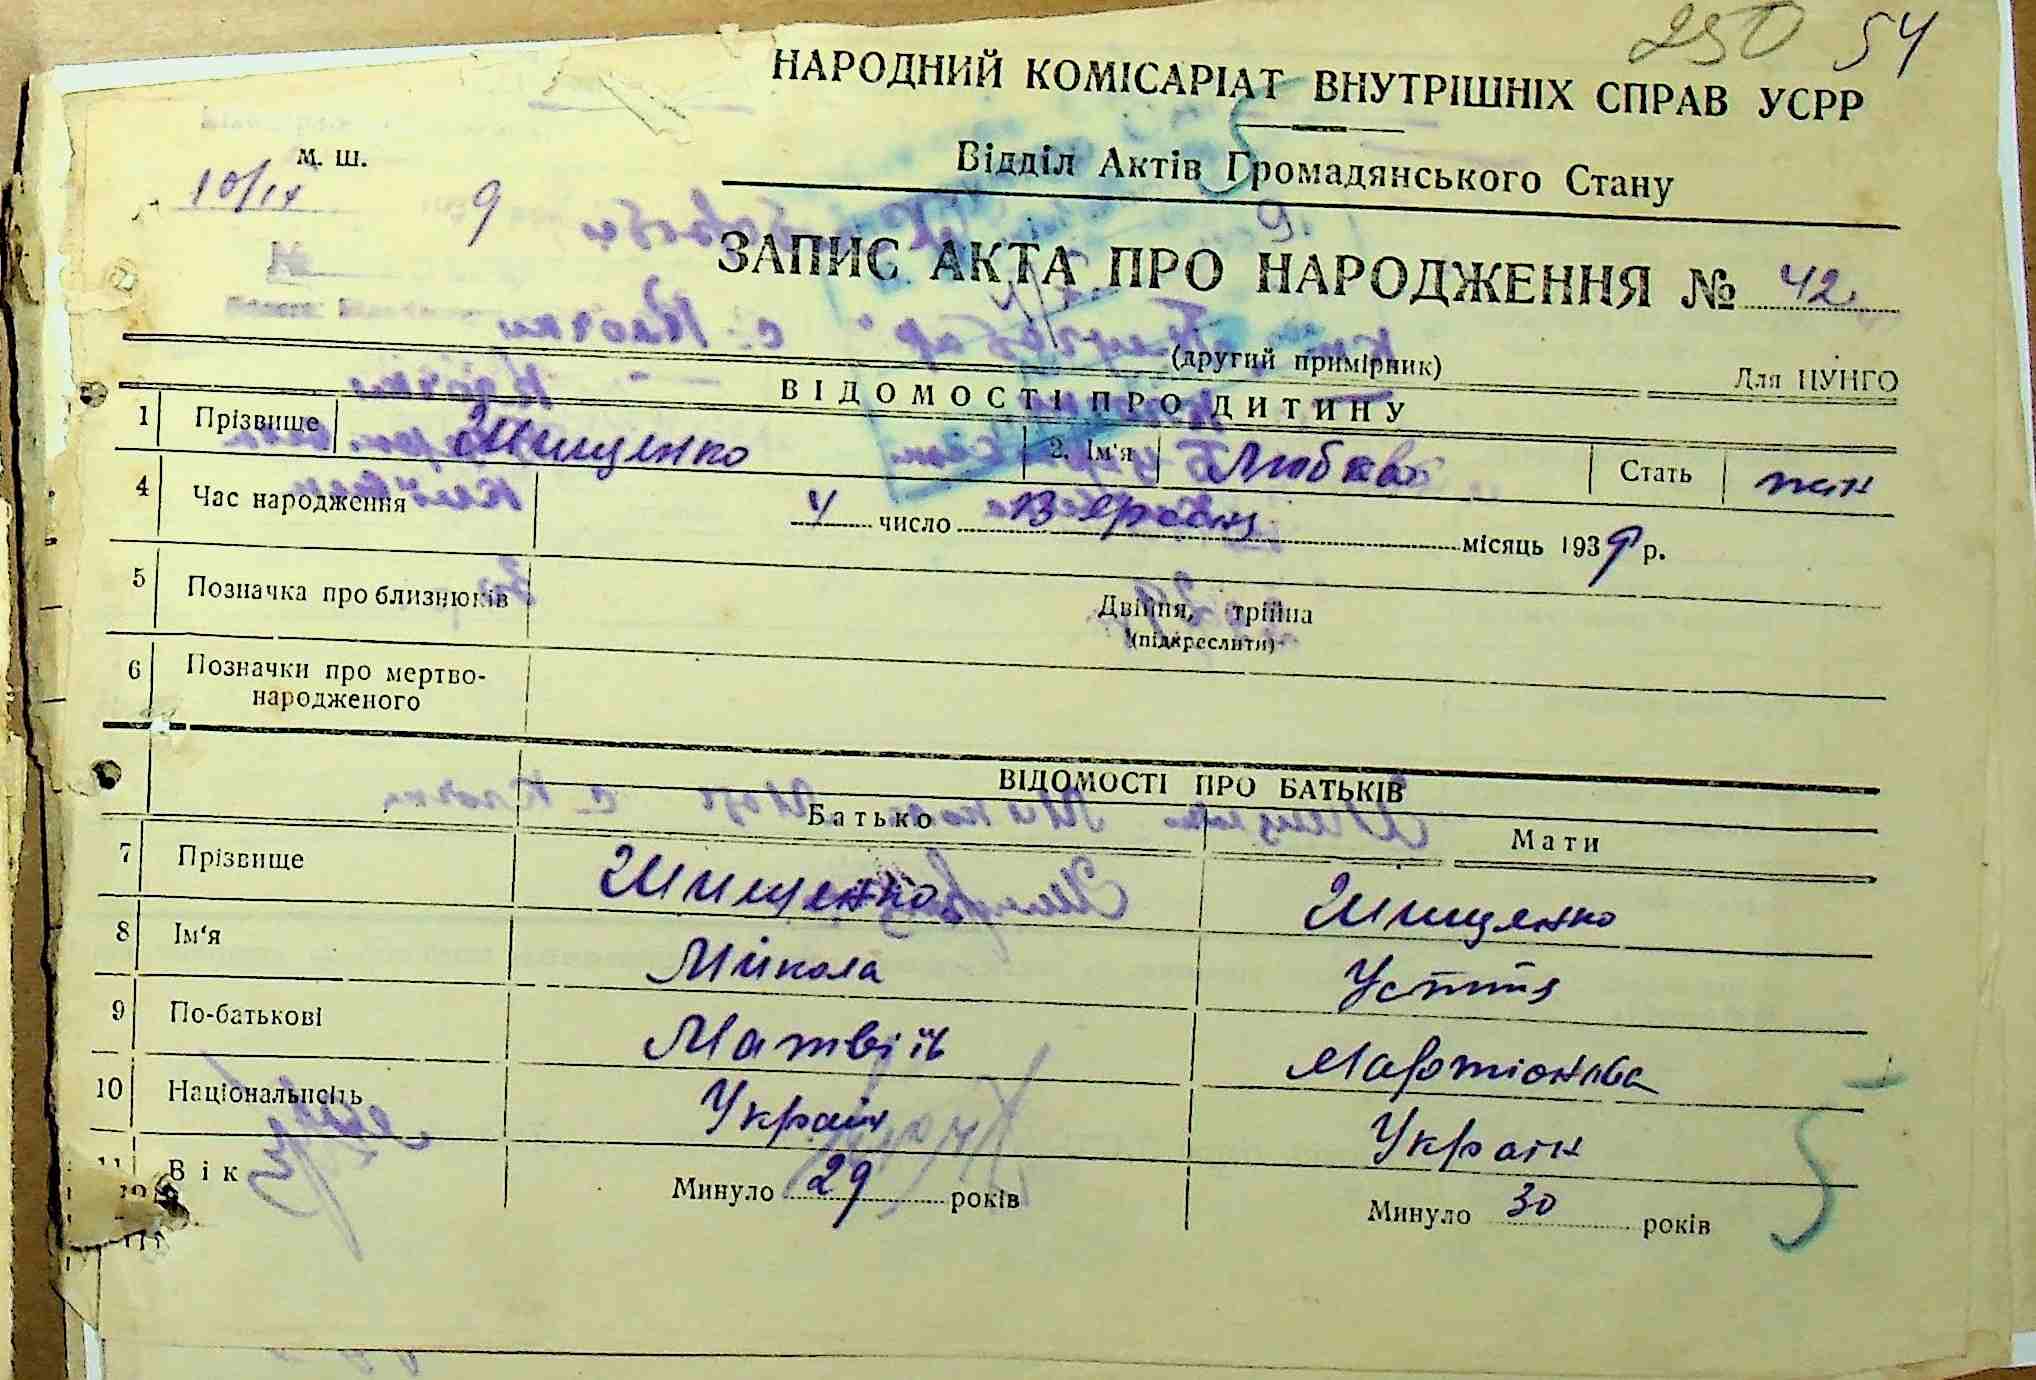 250 54
НАРОДНИЙ КОМІСАРІАТ ВНУТРІШНІХ СПРАВ УСРР
Відділ Актів Громадянського Стану
М. Ш.
10/IX 9
ЗАПИС АКТА ПРО НАРОДЖЕННЯ № 42
(другий примірник)
Для ЦУНГО
ВІДОМОСТІ ПРО ДИТИНУ
1 Прізвище Мищенко 2. Ім'я Любов Стать жін
4 Час народження 4 число Вересня місяць 1939 р.
5 Позначка про близнюків Двійня, трійна
(підкреслити)
6 Позначки про мертво-
народженого
ВІДОМОСТІ ПРО БАТЬКІВ
Батько Мати
7 Прізвище Мищенко Мищенко
8 Ім'я Микола Устя
9 По-батькові Матвіїв Мартіонівва
10 Національність Україн Україн
11 Вік Минуло 29 років Минуло 30 років